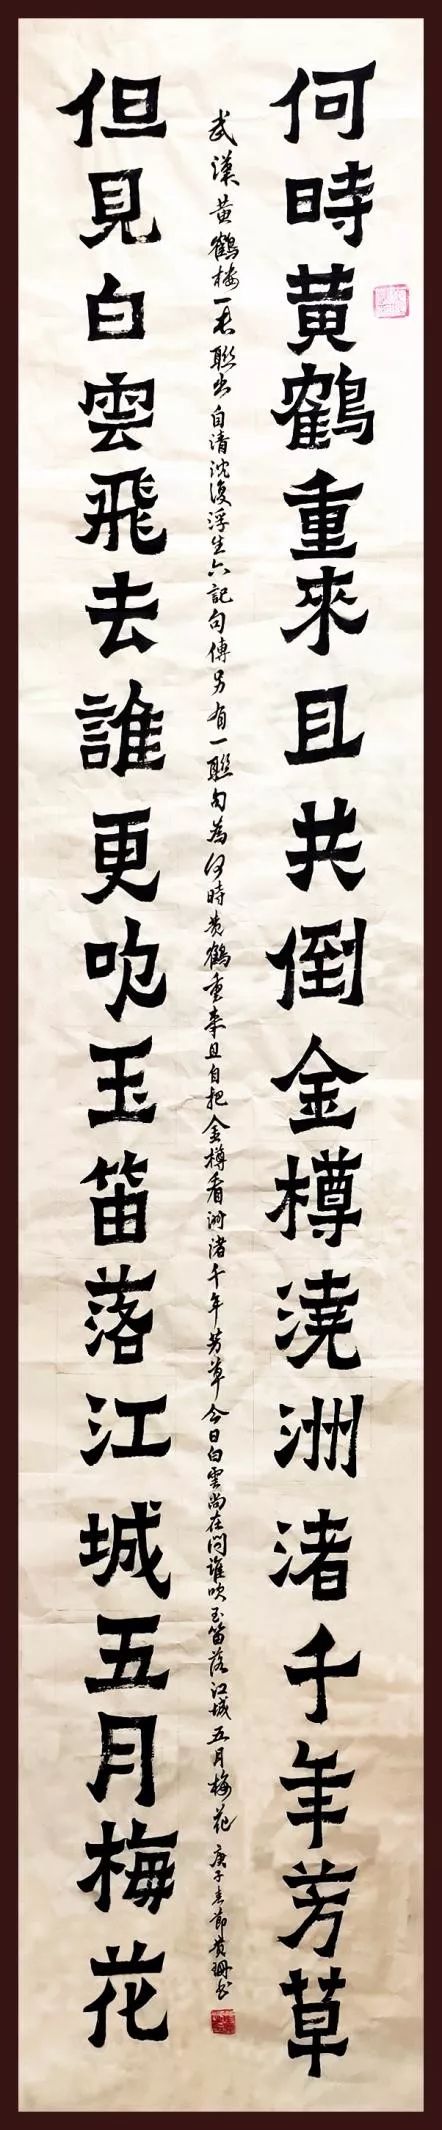 何時黄鶴重來且共倒金樽澆洲渚千年芳草
武漢黄鶴楼一長聯出自清沈復浮生六記句傳另有一聯句為何時黄鶴重来且自把金樽看洲渚千年芳草今日白雲尚在問誰吹玉笛落江城五月梅花 庚子春節黄珊书
但見白雲飛去誰更吹玉笛落江城五月梅花